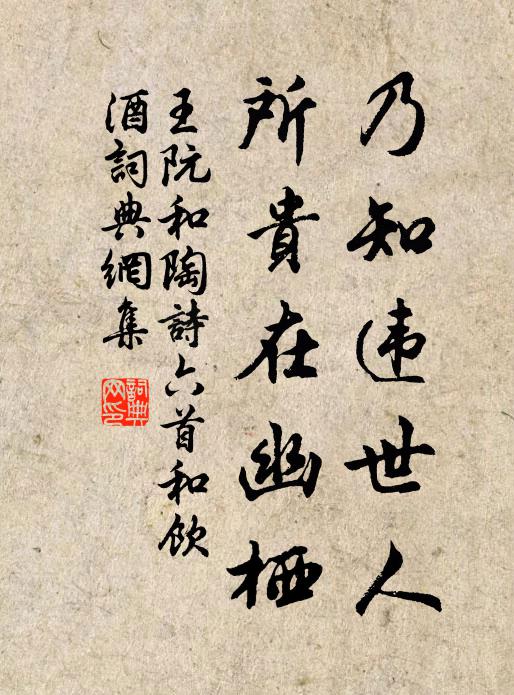 乃知违世人
所貴在幽栖
王阮和陶詩六首和飲
酒詞典網集
詞典
网印